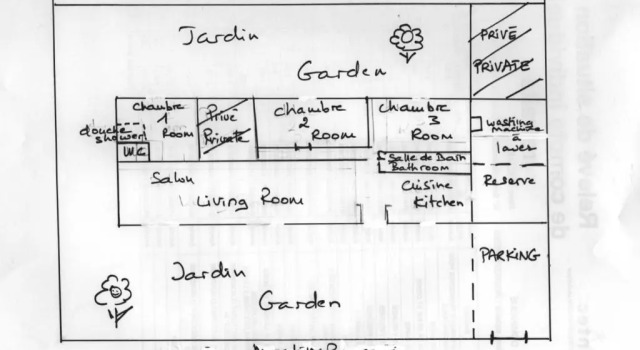 Jardin
Garden
PRIVÉ
PRIVATE
chambre
1
Room
douche
shower
W.C
Privé
Private
chambre
2
Room
chambre
3
Room
washing
machine
à
laver
Salle de Bain
Bathroom
Salon
Living Room
Cuisine
Kitchen
Reserve
PARKING
Jardin
Garden